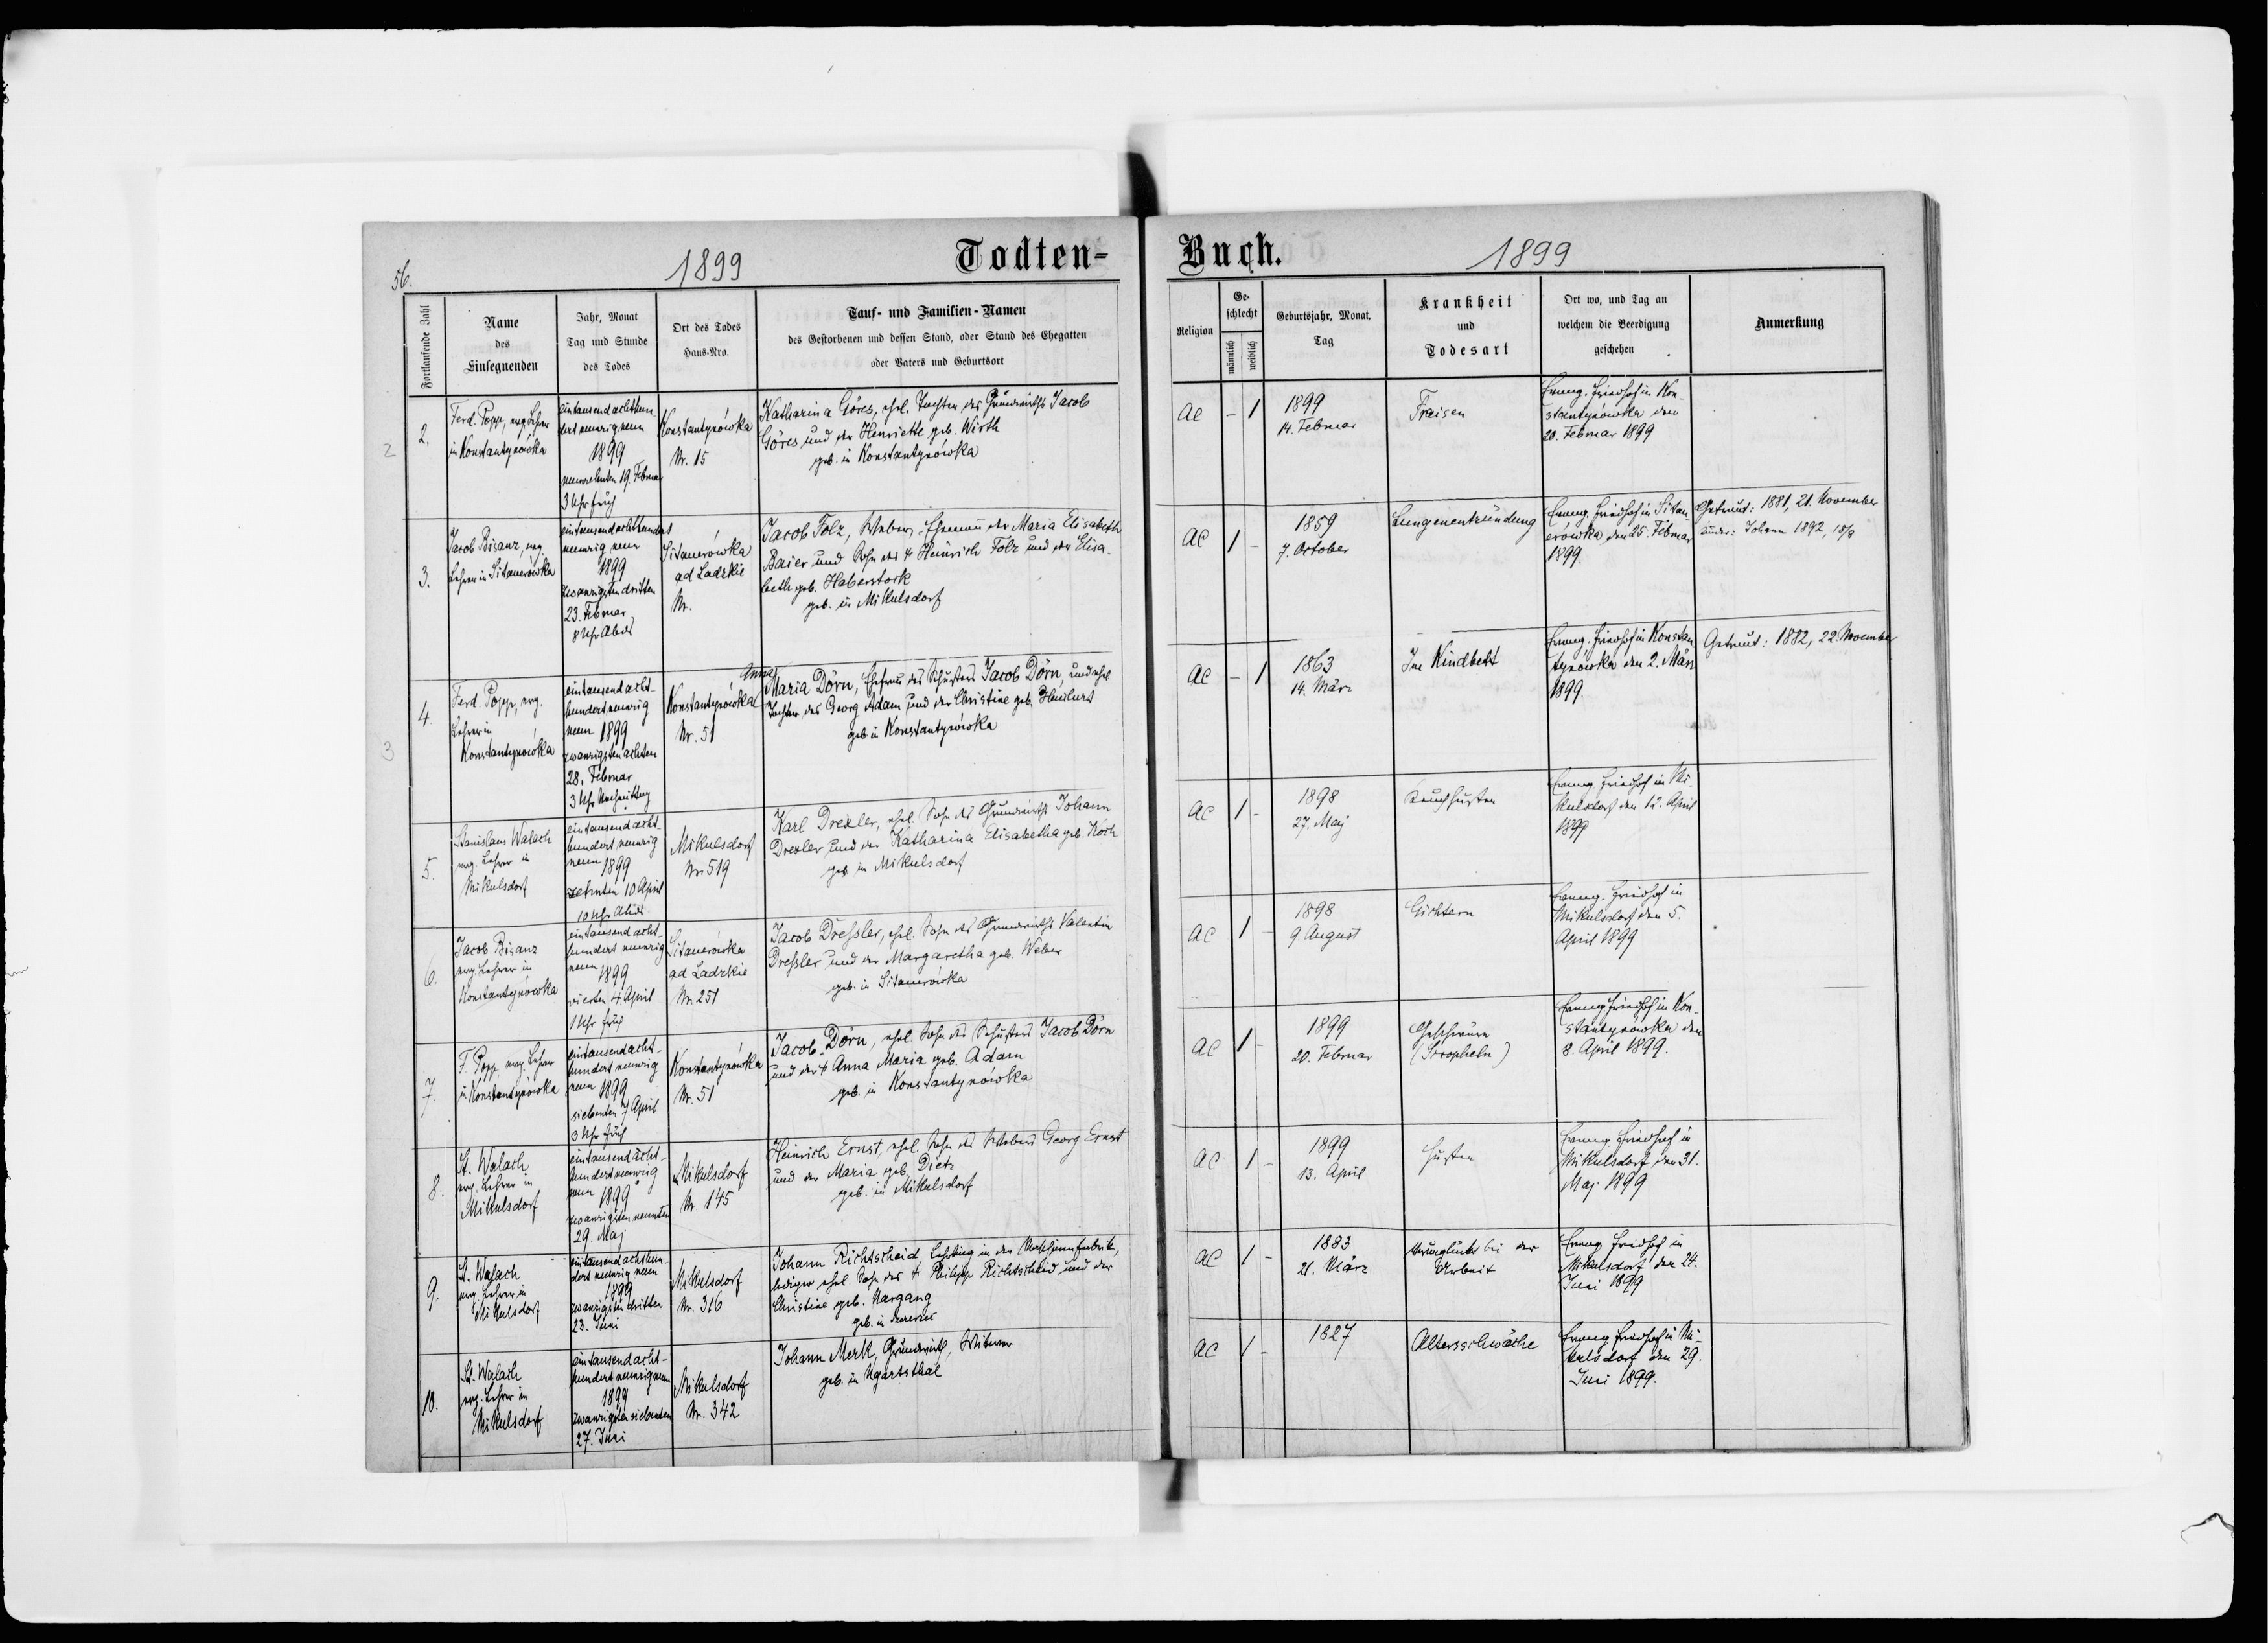 56.
1899
Todten-
Buch.
1899
Fortlaufende Zahl
Name
des
Einsegnenden
Jahr, Monat
Tag und Stunde
des Todes
Ort des Todes
Haus-Nro.
Tauf- und Familien-Namen
des Gestorbenen und dessen Stand, oder Stand des Ehegatten
oder Vaters und Geburtsort
Religion
Ge-
schlecht
männlich
weiblich
Geburtsjahr, Monat,
Tag
Krankheit
und
Todesart
Ort wo, und Tag an
welchem die Beerdigung
geschehen
Anmerkung
2
2.
Ferd. Popp, evg. Lehrer
in Konstantynówka
eintausendachthun-
dert neunzig neun
1899
neunzehnten 19. Februar
3 Uhr früh
Konstantynówka
Nr. 15
Katharina Göres, ehel. Tochter des Grundwirths Jacob
Göres und der Henriette geb. Wirth
geb. in Konstantynówka
AC
- 1
1899
14. Februar
Fraisen
Evang. Friedhof in Kon-
stantynówka den
20. Februar 1899
3.
Jacob Bisanz, evg.
Lehrer in Sitauerówka
eintausendachthundert
neunzig neun
1899
zwanzigsten dritten
23. Februar
8 Uhr Abds
Sitauerówka
ad Ladzkie
Nr.
Jacob Folz, Weber, Ehemann der Maria Elisabeth
Baier und Sohn des † Heinrich Folz und der Elisa-
beth geb. Haberstock
geb. in Mikulsdorf
AC
1 -
1859
7. October
Lungenentzündung
Evang. Friedhof in Sitau-
erówka den 25. Februar
1899.
Getraut: 1881, 21. November
Kinder: Johann 1892, 18/8
3
4.
Ferd. Popp, evg.
Lehrer in
Konstantynówka
eintausendacht-
hundert neunzig
neun 1899
zwanzigsten achten
28. Februar
3 Uhr Nachmittag
Konstantynówka
Nr. 51
Anna
Maria Dörn, Ehefrau des Schusters Jacob Dörn, und ehel
Tochter des Georg Adam und der Christine geb.
geb. in Konstantynówka
AC
- 1
1863
14. März
Im Kindbett
Evang. Friedhof in Konstan-
tynówka den 2. März
1899.
Getraut: 1882, 22. November
5.
Stanislaus Walach
evg. Lehrer in
Mikulsdorf
eintausendacht-
hundert neunzig
neun 1899
zehnten 10 April
10 Uhr Abds
Mikulsdorf
Nr. 519
Karl Drexler, ehel. Sohn des Grundwirths Johann
Drexler und der Katharina Elisabetha geb. Koch
geb. in Mikulsdorf
AC
1 -
1898
27. Maj
Keuchhusten
Evang. Friedhof in Mi-
kulsdorf den 12. April
1899
6.
Jacob Bisanz
evg. Lehrer in
Konstantynówka
eintausendacht-
hundert neunzig
neun 1899
vierten 4. April
1 Uhr früh
Sitauerówka
ad Ladzkie
Nr. 251
Jacob Dreßler, ehel. Sohn des Grundwirths Valentin
Dreßler und der Margaretha geb. Weber
geb. in Sitauerówka
AC
1 -
1898
9 August
Gichtern
Evang. Friedhof in
Mikulsdorf den 5.
April 1899
7.
F. Popp evg. Lehrer
in Konstantynówka
eintausendacht-
hundert neunzig
neun 1899
siebenten 7. April
3 Uhr früh
Konstantynówka
Nr. 51
Jacob Dörn, ehel. Sohn des Schusters Jacob Dörn
und der † Anna Maria geb. Adam
geb. in Konstantynówka
AC
1 -
1899
20. Februar
Geschwüre
(Stropheln)
Evang. Friedhof in Kon-
stantynówka den
8. April 1899.
8.
St. Walach
evg. Lehrer in
Mikulsdorf
eintausendacht-
hundert neunzig
neun 1899
zwanzigsten neunten
29. Maj
Mikulsdorf
Nr. 145
Heinrich Ernst, ehel. Sohn des Webers Georg Ernst
und der Maria geb. Dietz
geb. in Mikulsdorf
AC
1 -
1899
13. April
Husten
Evang. Friedhof in
Mikulsdorf den 31.
Maj 1899
9.
St. Walach
evg. Lehrer in
Mikulsdorf
eintausendachthun-
dert neunzig neun
1899
zwanzigsten dritten
23. Juni
Mikulsdorf
Nr. 316
Johann Richtscheid Lehrling in der Maschinenfabrik,
lediger ehel. Sohn des † Philipp Richtscheid und der
Christine geb. Nargang
geb. in
AC
1 -
1883
21. März
Verunglückt bei der
Arbeit
Evang. Friedhof in
Mikulsdorf den 24.
Juni 1899
10.
St. Walach
evg. Lehrer in
Mikulsdorf
eintausendacht-
hundert neunzig neun
1899
zwanzigsten siebenten
27. Juni
Mikulsdorf
Nr. 342
Johann Merk, Grundwirth, Witwer
geb. in Ugartsthal
AC
1 -
1827
Altersschwäche
Evang. Friedhof in Mi-
kulsdorf den 29.
Juni 1899.